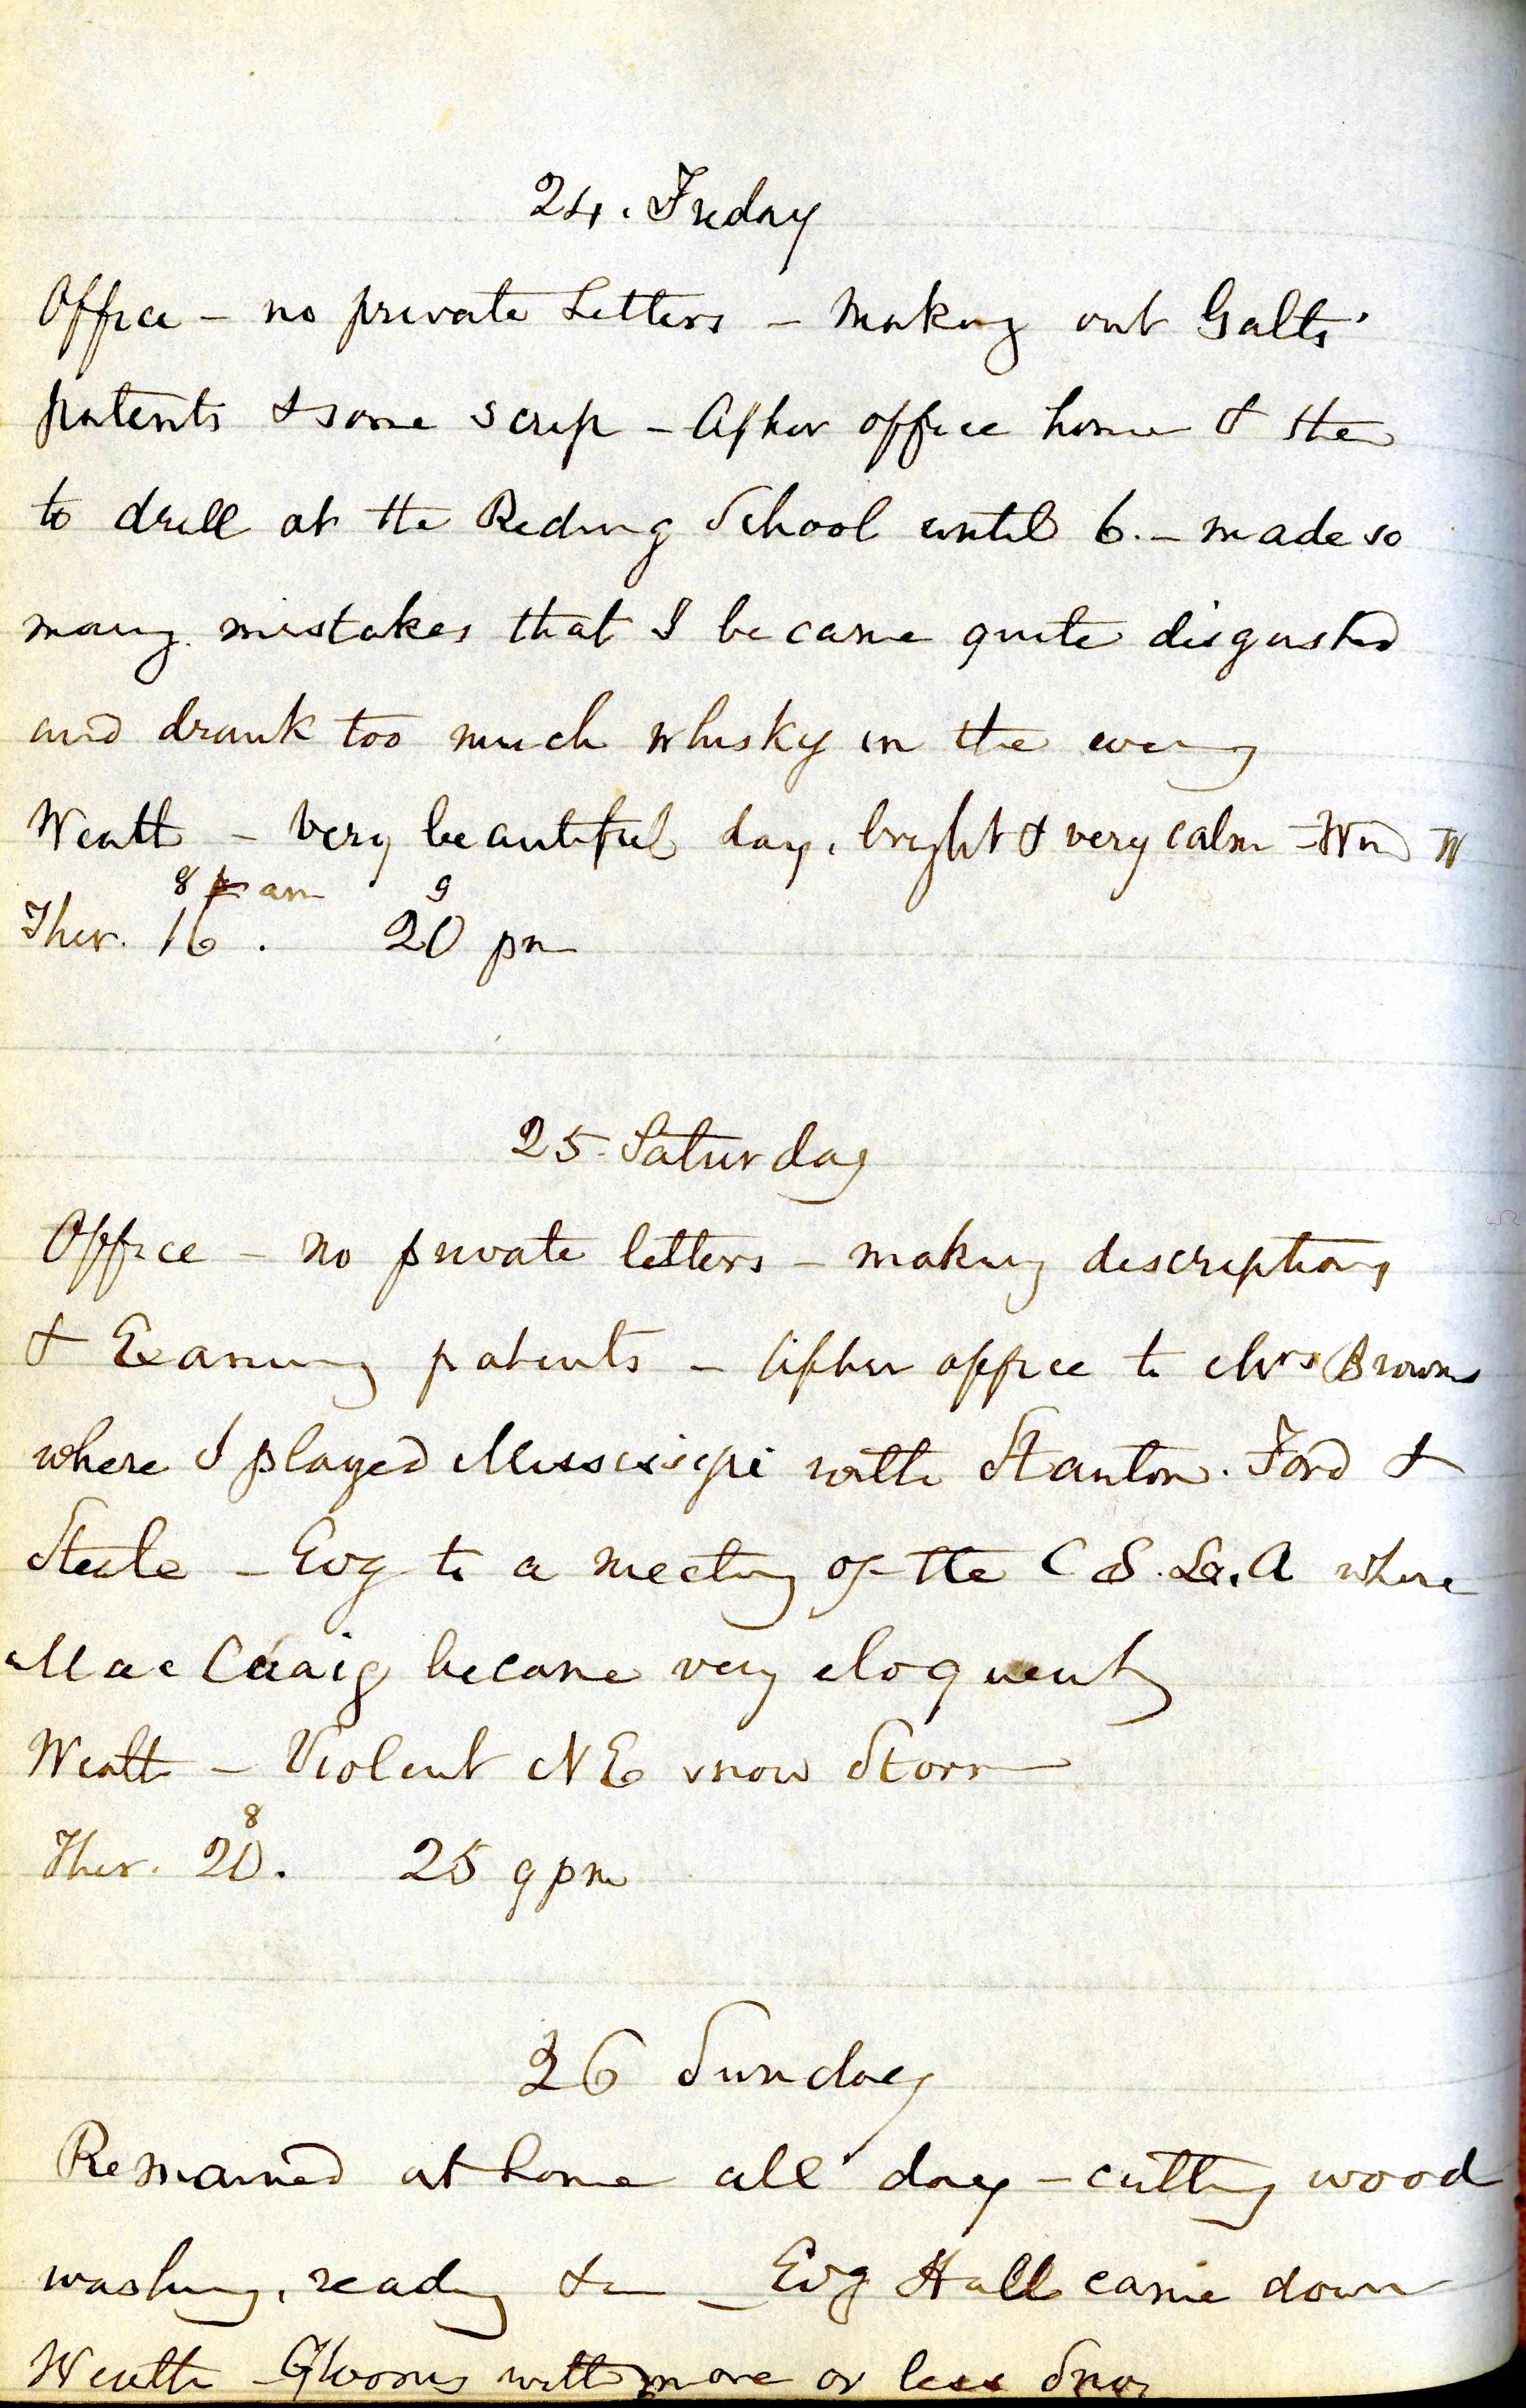 24. Friday
Office - no private Letters - Making out Galts'
patents & some scrip - After office home & then
to drill at the Riding School until 6. - made so
many mistakes that I became quite disgusted
and drank too much whisky in the evening
Weath - Very beautiful day, bright & very calm - Wind W
8 am 9
Ther. 16. 20 pm
25. Saturday
Office - no private letters - making descriptions
& Examing patents - After office to Mrs Browns
where I played Mississipi with Stanton. Ford &
Steele - Evg to a meeting of the C S. L. A where
Mac Caaig became very eloquent
Weath - Violent NE snow Storm
8
Ther. 20. 25 9 pm
26 Sunday
Remained at home all day - cutting wood
washing, reading &c - Evg Hall came down
Weath - Gloomy with more or less Snow